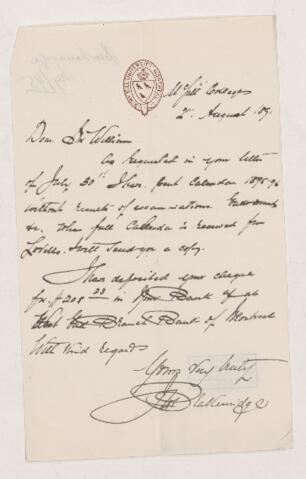 McGill College
2 August 189
Dear Sir William
As requested in your letter
of July 30th I have sent Calendar 1895-96
without results of examinations
&c. When full Calendar is received from
Lovells I will send you a copy.
I have deposited your cheque
for $208 23 in your Bank
West End Branch Bank of Montreal
With kind regards
Yours very truly